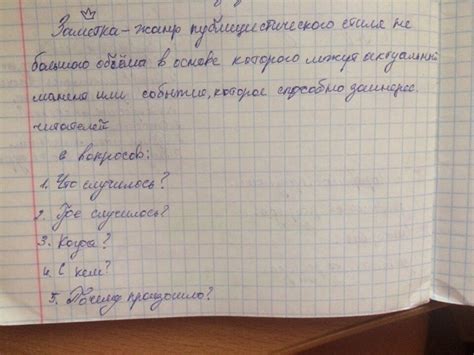 Заметка - жанр публицистического стиля не
большого объёма в основе которого лежит актуальный
момент или событие, которое способно заинтерес.
читателей
6 вопросов:
1. Что случилось?
2. Где случилось?
3. Когда?
4. С кем?
5. Почему произошло?